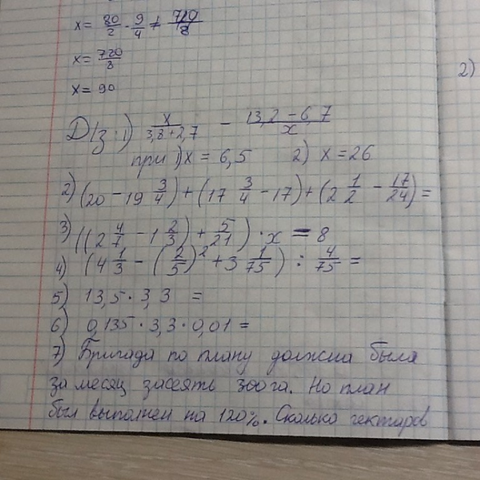 x = 80/2 · 9/4 = 720/8
x = 720/8
x = 90
2)
Д/з: 1) x/(3,8+2,7) − (13,2−6,7)/x
при 1) x = 6,5 2) x = 26
2) (20 − 19 3/4) + (17 3/4 − 17) + (2 1/2 − 17/24) =
3) ((2 4/7 − 1 2/3) + 5/21) · x = 8
4) (4 1/3 − (2/5)² + 3 1/75) : 4/75 =
5) 13,5 · 3,3 =
6) 0,135 · 3,3 · 0,01 =
7) Бригада по плану должна была
за месяц засеять 300 га. Но план
был выполнен на 120%. Сколько гектаров